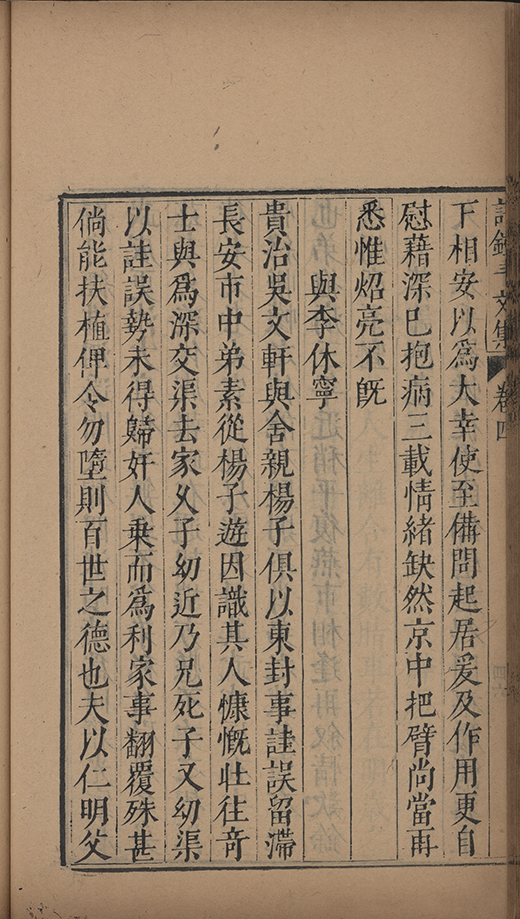 文集 卷四
下相安以爲大幸使至備問起居爰及作用更自
慰藉深已抱病三載情緒缺然京中把臂尚當再
悉惟炤亮不旣
與李休寧
貴治吳文軒與舍親楊子俱以東封事詿誤留滯
長安市中弟素從楊子遊因識其人慷慨壯往奇
士與爲深交渠去家久子幼近乃兄死子又幼渠
以詿誤勢未得歸奸人乗而爲利家事翻覆殊甚
倘能扶植俾令勿墮則百世之德也夫以仁明父